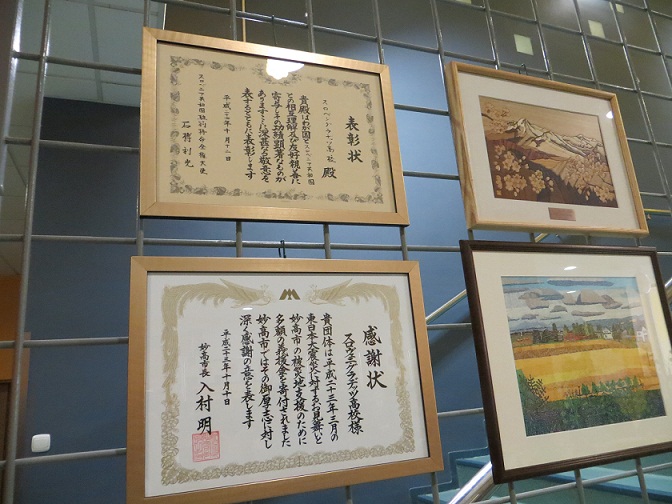 表彰状
スロベングラデッツ高校 殿
貴殿はわが国とスロベニア共和国
との相互理解及び友好親善に
寄与しその功績顕著なものが
ありますここに深甚なる敬意を
表するとともに表彰します
平成二三年十月十二日
スロベニア共和国駐箚特命全権大使
感謝状
スロヴェニグラデッツ高校様
貴団体は平成二十三年三月の
東日本大震災に対するお見舞いと
妙高市の被災地支援のために
多額の義援金を寄付されました
妙高市ではその御厚志に対し
深く感謝の意を表します
平成二十三年十月十日
妙高市長 入村 明